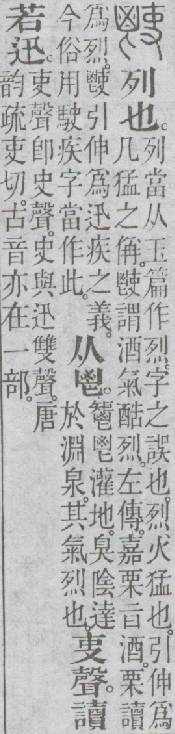 列也。列當从玉篇作烈。字之誤也。烈火猛也。引伸爲凡猛之偁。謂酒氣酷烈。左傳。嘉栗旨酒。栗讀
爲烈。引伸爲迅疾之義。今俗用駛疾字當作此。从鬯。鬯灌地。臭陰達於淵泉。其氣烈也。吏聲。讀
若迅。吏聲卽史聲。史與迅雙聲。唐韵疏吏切。古音亦在一部。